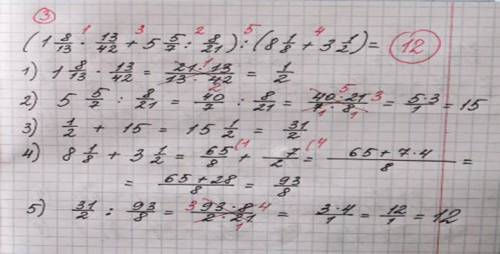 3
1 3 2 5 4
(1 8/13 · 13/42 + 5 5/7 : 8/21) : (8 1/8 + 3 1/2) = 12
1) 1 8/13 · 13/42 = 21·13/13·42 = 1/2
2) 5 5/7 : 8/21 = 40/7 : 8/21 = 40·21/7·8 = 5·3/1 = 15
3) 1/2 + 15 = 15 1/2 = 31/2
4) 8 1/8 + 3 1/2 = 65/8 + 7/2 = 65+7·4/8 =
= 65+28/8 = 93/8
5) 31/2 : 93/8 = 93·8/2·21 = 3·4/1 = 12/1 = 12